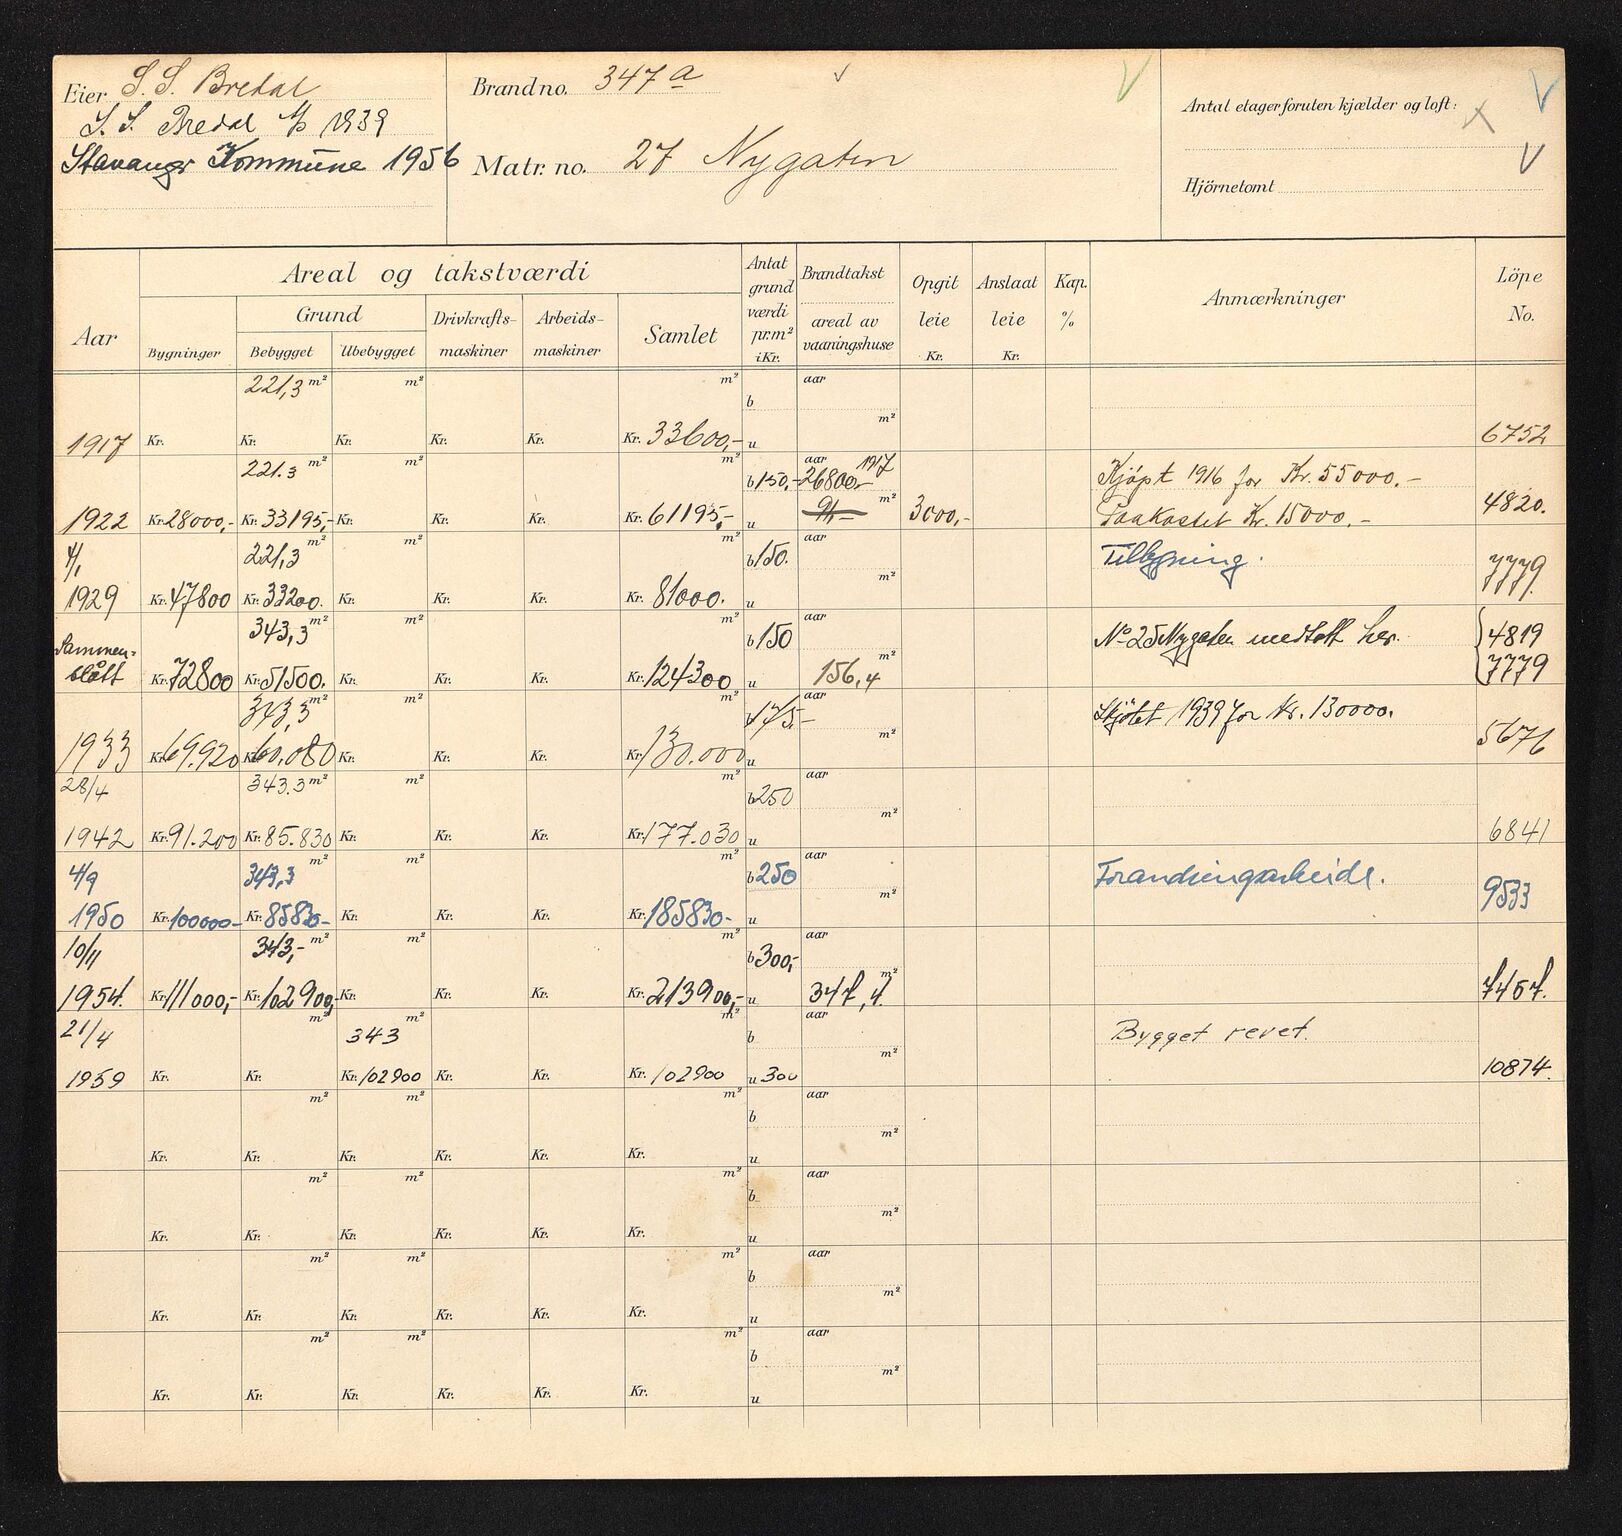 Eier S. S. Bredal
S. S. Bredal A/S 1939
Stavanger Kommune 1956
Brand no. 347 a
Matr. no. 27 Nygaten
Antal etager foruten kjælder og loft:
Hjörnetomt
Aar
Areal og takstværdi
Bygninger
Grund
Bebygget
Ubebygget
Drivkrafts-
maskiner
Arbeids-
maskiner
Samlet
Antat
grund
værdi
pr. m²
i Kr.
Brandtakst
areal av
vaaningshuse
Opgit
leie
Kr.
Anslaat
leie
Kr.
Kap.
%
Anmærkninger
Löpe
No.
221,3 m² m² m² b aar
1917 Kr. Kr. Kr. Kr. Kr. Kr. 33600,- u m² 6752
221.3 m² m² m² b 150,- aar 1917 26800,- Kjøpt 1916 for Kr. 55000.-
1922 Kr. 28000,- Kr. 33195,- Kr. Kr. Kr. Kr. 61195,- u m² 3000,- Paakostet Kr. 15000.- 4820.
4/1 221,3 m² m² m² b 150. aar Tilbygning.
1929 Kr. 47800 Kr. 33200. Kr. Kr. Kr. Kr. 81000. u m² 7779.
Sammen- 343,3 m² m² m² b 150 aar No 25 Nygaten medtatt her. 4819
slått Kr. 72800 Kr. 51500. Kr. Kr. Kr. Kr. 124300 u 156,4 m² 7779
343,3 m² m² m² b 175,- aar Skjøtet 1939 for kr. 130000.
1933 Kr. 69.920 Kr. 60.080 Kr. Kr. Kr. Kr. 130.000 u m² 5676
28/4 343.3 m² m² m² b 250 aar
1942 Kr. 91.200 Kr. 85.830 Kr. Kr. Kr. Kr. 177.030 u m² 6841
4/9 343,3 m² m² m² b 250 aar Forandringsarbeide.
1950 Kr. 100000- Kr. 85830- Kr. Kr. Kr. Kr. 185830- u m² 9533
10/11 343,- m² m² m² b 300,- aar
1954. Kr. 111000,- Kr. 102900,- Kr. Kr. Kr. Kr. 213900,- u 347,4 m² 7457.
21/4 m² 343 m² m² b aar Bygget revet.
1959 Kr. Kr. Kr. 102900 Kr. Kr. Kr. 102900 u 300 m² 10874.
m² m² m² b aar
Kr. Kr. Kr. Kr. Kr. Kr. u m²
m² m² m² b aar
Kr. Kr. Kr. Kr. Kr. Kr. u m²
m² m² m² b aar
Kr. Kr. Kr. Kr. Kr. Kr. u m²
m² m² m² b aar
Kr. Kr. Kr. Kr. Kr. Kr. u m²